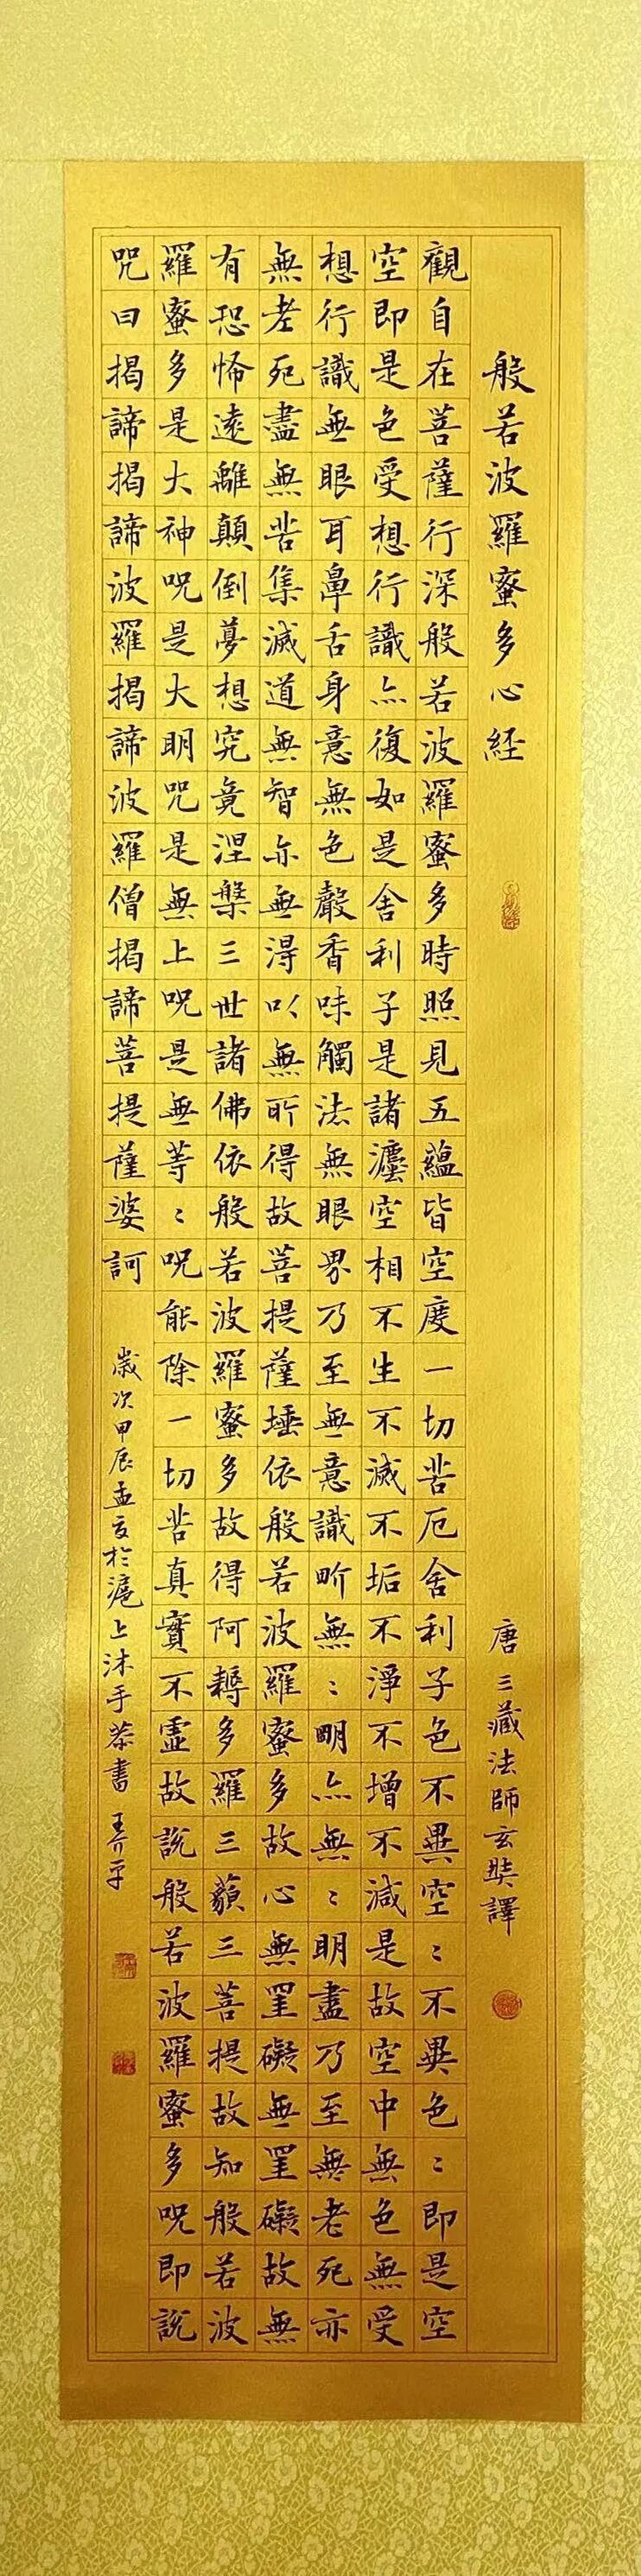 般若波羅蜜多心経
唐三藏法師玄奘譯
觀自在菩薩行深般若波羅蜜多時照見五蘊皆空度一切苦厄舍利子色不異空〻不異色〻即是空
空即是色受想行識亦復如是舍利子是諸灋空相不生不滅不垢不淨不增不減是故空中無色無受
想行識無眼耳鼻舌身意無色聲香味觸法無眼界乃至無意識界無〻明亦無〻明盡乃至無老死亦
無老死盡無苦集滅道無智亦無得以無所得故菩提薩埵依般若波羅蜜多故心無罣礙無罣礙故無
有恐怖遠離顛倒夢想究竟涅槃三世諸佛依般若波羅蜜多故得阿耨多羅三藐三菩提故知般若波
羅蜜多是大神咒是大明咒是無上咒是無等〻咒能除一切苦真實不虛故說般若波羅蜜多咒即說
咒曰揭諦揭諦波羅揭諦波羅僧揭諦菩提薩婆訶
歲次甲辰孟夏於滬上沐手恭書 王介平